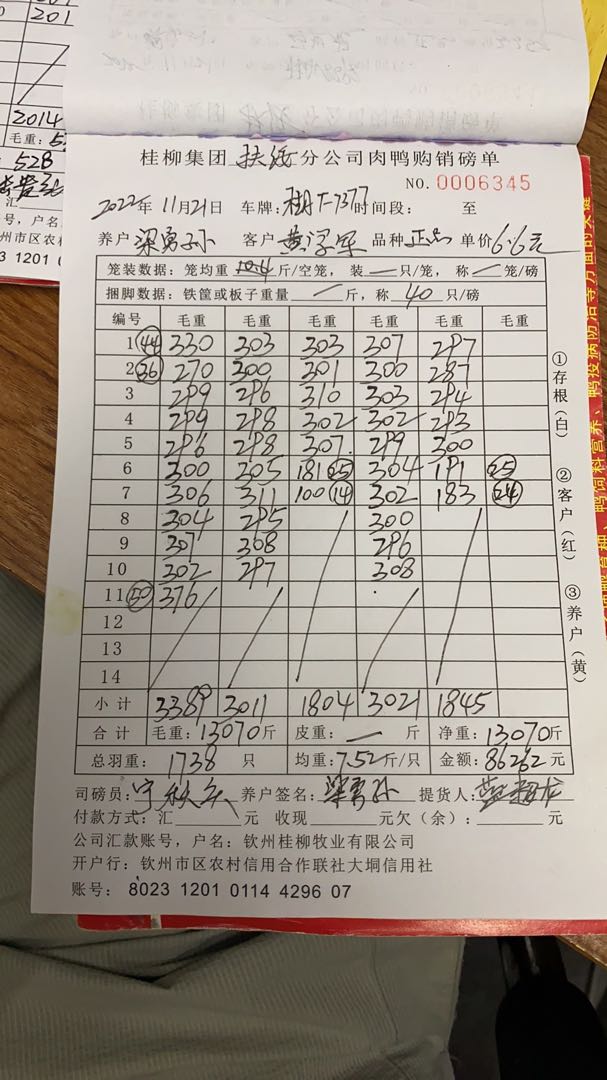 201
2014
毛重：5
528
号，户名
州市区农村
23 1201 0
桂柳集团 扶绥 分公司肉鸭购销磅单
NO. 0006345
2022年 11月21日 车牌： T-7377 时间段： 至
养户 梁勇孙 客户 品种 正品 单价 6.6元
笼装数据：笼均重 10.4 斤/空笼，装 一 只/笼，称 一 笼/磅
捆脚数据：铁筐或板子重量 一 斤，称 40 只/磅
编号 毛重 毛重 毛重 毛重 毛重 毛重
1 44 330 303 303 307 297
2 36 270 300 301 300 287
3 299 296 310 303 294
4 299 298 302 302 293
5 296 298 307 299 300
6 300 305 181 25 304 191 25
7 306 311 100 14 302 183 24
8 304 295 300
9 307 308 296
10 302 297 308
11 50 376
12
13
14
小计 3389 3011 1804 3021 1845
合计 毛重：13070斤 皮重： 一 斤 净重：13070斤
总羽重： 1738 只 均重：7.52斤/只 金额：86262元
司磅员： 养户签名：梁勇孙 提货人：
付款方式：汇 元 收现 元欠（余）： 元
公司汇款账号，户名：钦州桂柳牧业有限公司
开户行：钦州市区农村信用合作联社大垌信用社
账号： 8023 1201 0114 4296 07
①存根（白）
②客户（红）
③养户（黄）